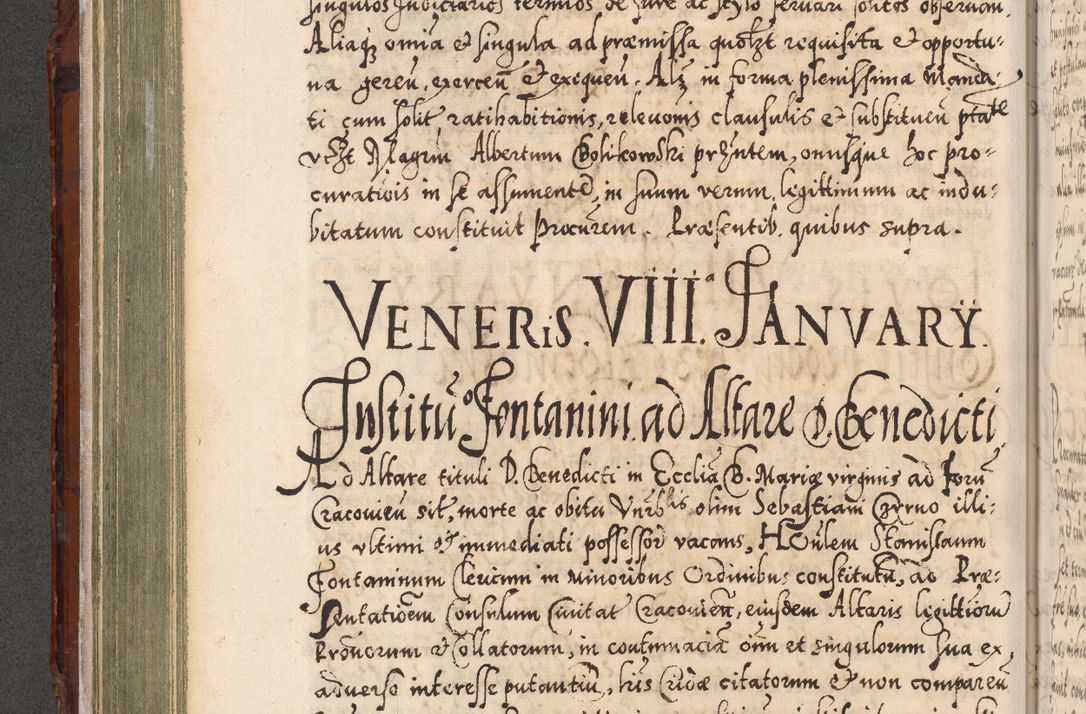 singulos Judiciarios terminos de jure ac stylo servari solitos observan.
Aliaq₃ omia et singula ad præmissa quotzt requisita et opportu-
na geren̄, exercen̄ et exequen̄. Al₃ in forma plenissima Manda-
ti cum solit ratihabitionis, relevonis clausulis et substituen̄ ptãte
vtzt Magrm Albertum Bolikowski prz̃ntem, onusque hoc pro-
curatiois in se assumente, in suum verum, legittimum ac indu-
bitatum constituit Procur̃em. Præsentib. quibus supra.
VENERis. VIII.ª JANVARŸ.
Institũ Fontanini ad Altare D. Benedicti
Ad Altare tituli D. Benedicti in Ecclia B. Mariæ virginis ad Forũ
Cracovien̄ sit, morte ac obitu Vnr̃blis olim Sebastiani Czyrno illi-
us vltimi et immediati possessor vacans, HOn̄lem Stanislaum
Fontaninum Clericum in Minoribus Ordinibus constitutũ, ad Præ-
sentatioẽm Consulum Civitat Cracovien̄, eiusdem Altaris legittiorũ
Prõvorum et Collatorum, in contumaciã oĩm et singulorum sua ex
adverso interesse putantiũ, his Cridæ citatorum et non comparen̄